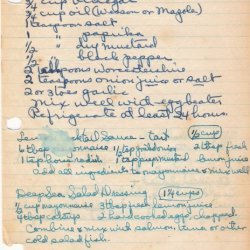 3/4 cup
3/4 cup oil (Wesson or Mazola)
1 teaspoon salt
1 " paprika
1/2 " dry mustard
1/2 " black pepper
2 teaspoons Worcestershire
2 teaspoons onion juice or salt
2 or 3 toes garlic
Mix well with egg beater
Refrigerate at least 24 hours.
Cocktail Sauce - Tart 1/2 cup
6 tbsp mayonnaise 1/2 tsp 2 tbsp fresh
1 tsp horseradish 1 tsp prep mustard lemon juice
add all ingredients to mayonnaise & mix well
Deep Sea Salad Dressing (1 1/4 cups)
1/2 cup mayonnaise 3 tbsp fresh lemon juice
4 tbsp catsup 2 hard cooked eggs chopped.
Combine & mix with salmon, tuna or other
cold salad fish.